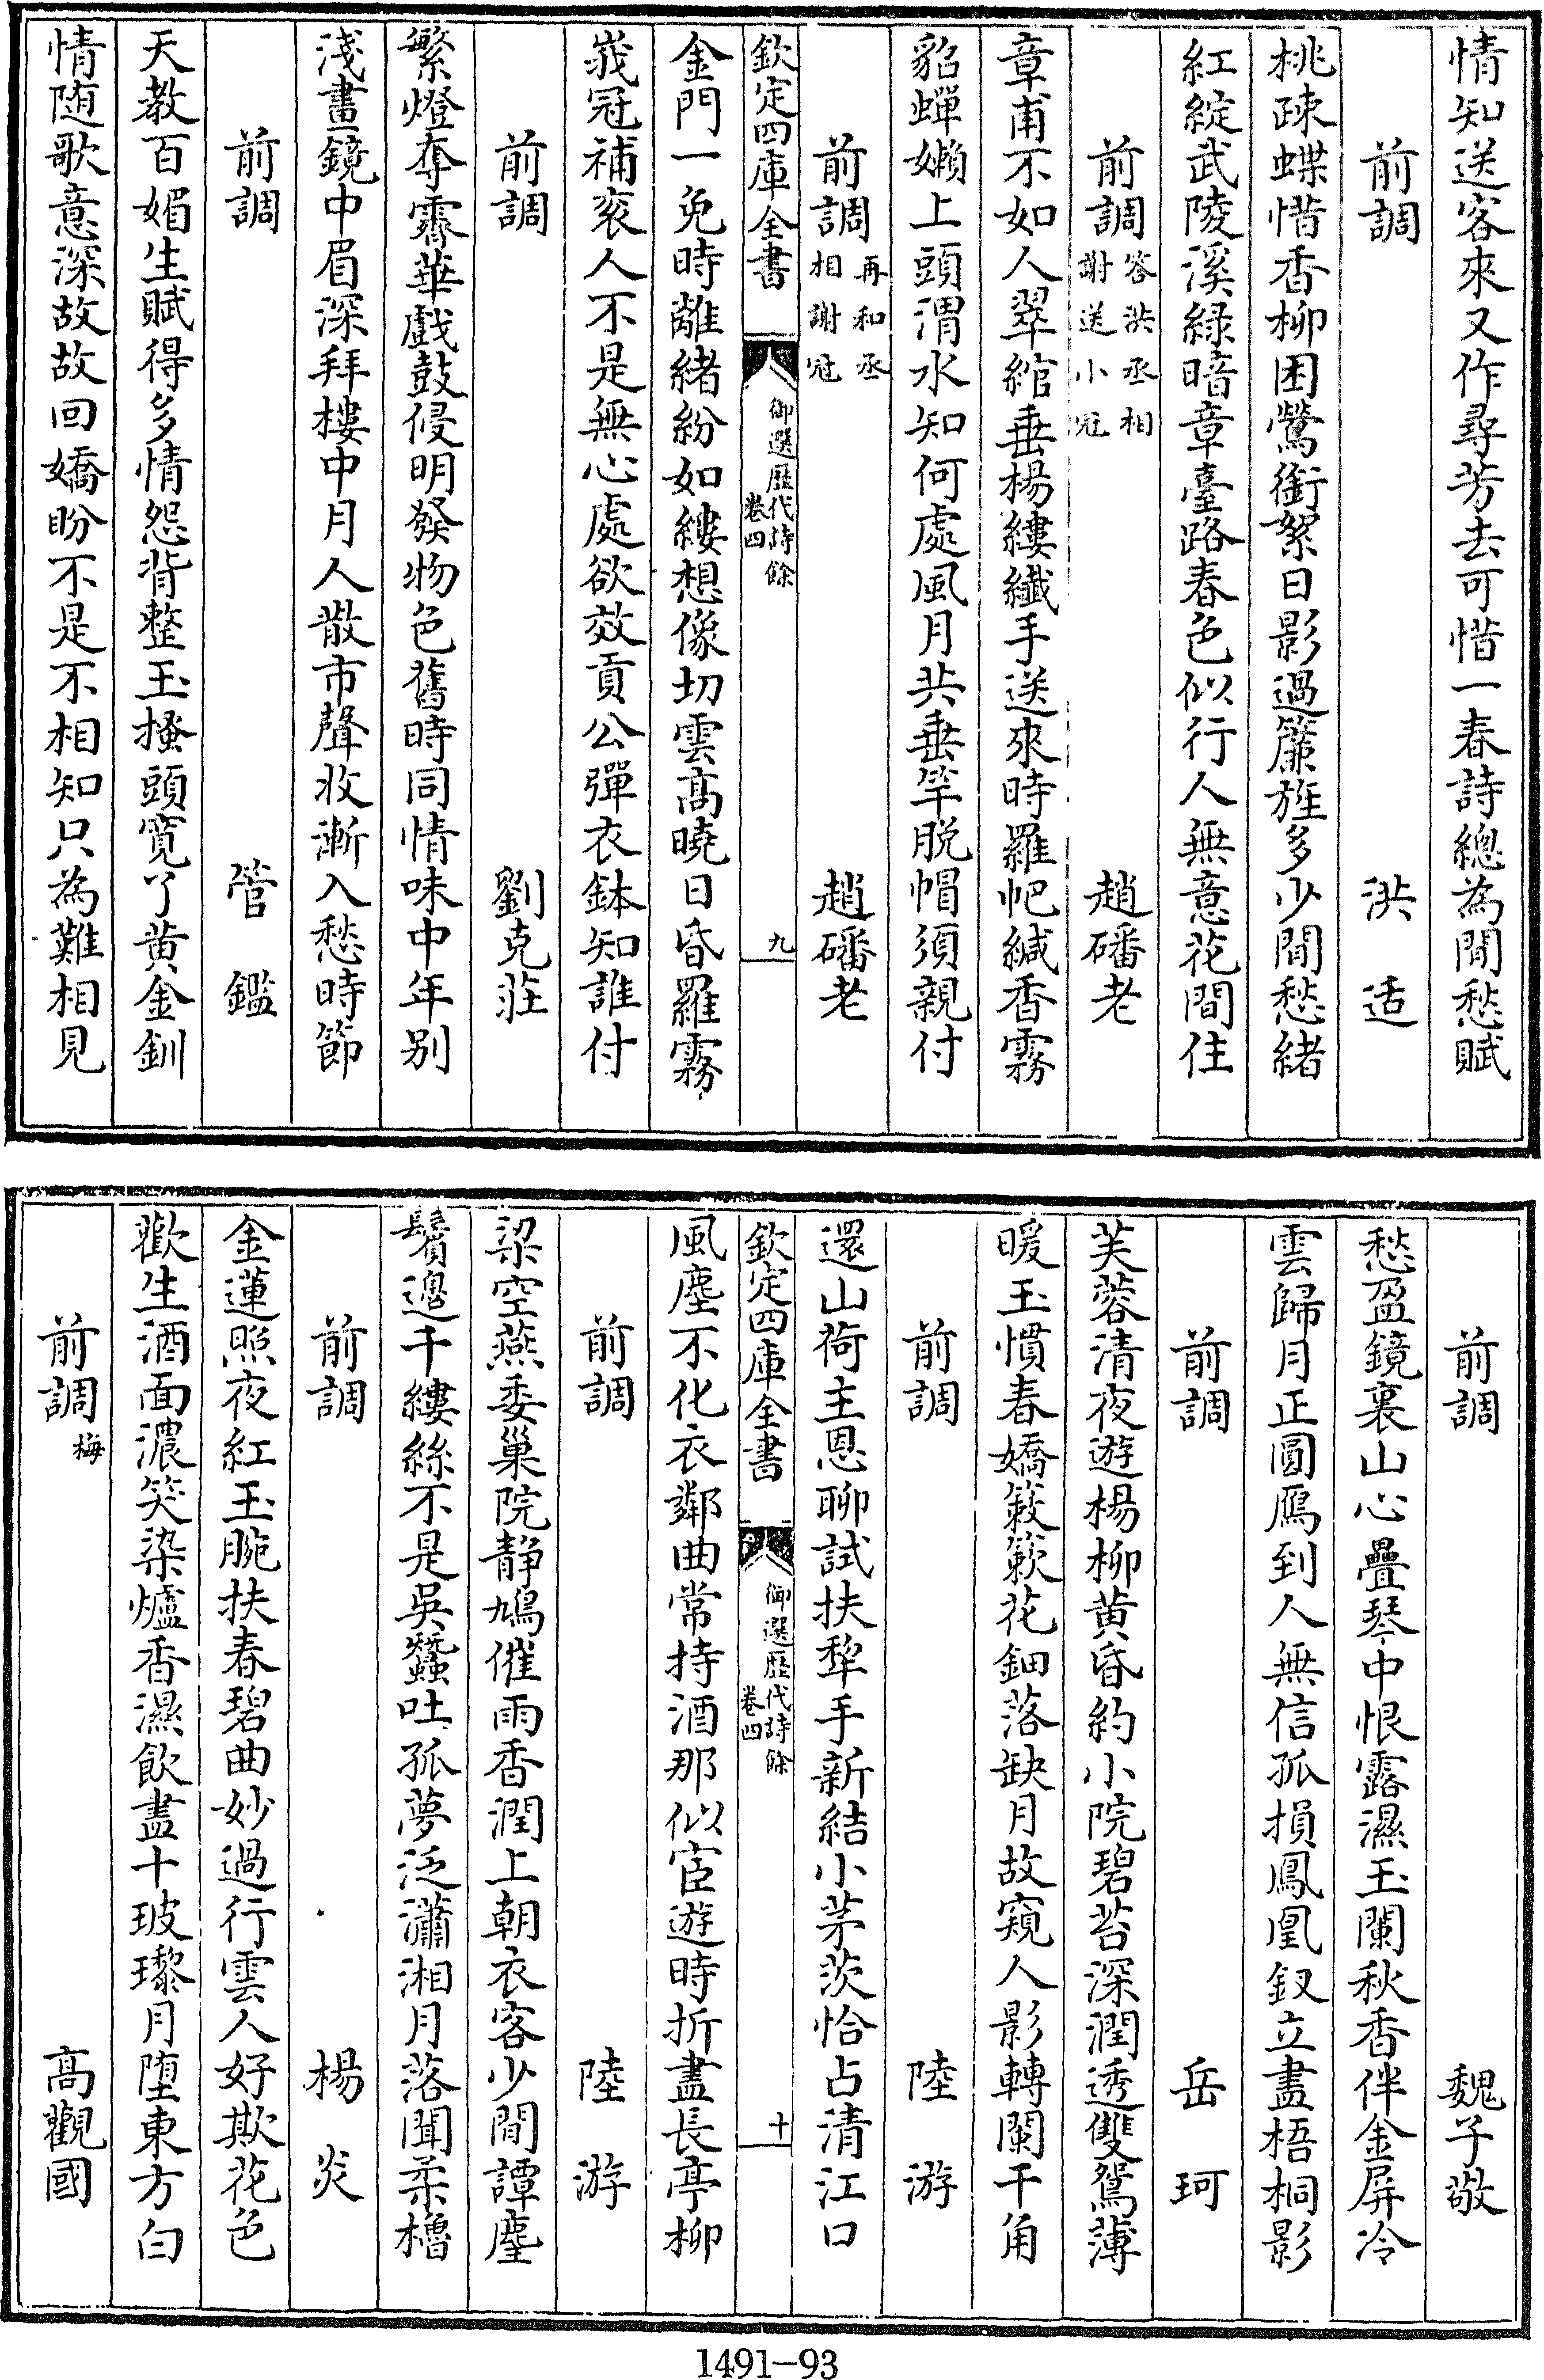 情知送客來又作尋芳去可惜一春詩總為閒愁賦
前調 洪适
桃疎蝶惜香柳困鶯銜絮日影過簾旌多少閒愁緒
紅綻武陵溪緑暗章臺路春色似行人無意花間住
前調 答洪丞相謝送小冠 趙磻老
章甫不如人翠綰垂楊縷纖手送來時羅帊緘香霧
貂蟬嬾上頭渭水知何處風月共垂竿脱帽須親付
前調 再和丞相謝冠 趙磻老
欽定四庫全書 御選歷代詩餘 卷四 九
金門一免時離緒紛如縷想像切雲高曉日昏羅霧
峩冠補衮人不是無心處欲效貢公彈衣鉢知誰付
前調 劉克莊
繁燈奪霽華戲鼓侵明發物色舊時同情味中年别
淺畫鏡中眉深拜樓中月人散市聲收漸入愁時節
前調 管鑑
天教百媚生賦得多情怨背整玉搔頭寛了黄金釧
情随歌意深故故回嬌盼不是不相知只為難相見
前調 魏子敬
愁盈鏡裏山心疊琴中恨露濕玉闌秋香伴金屏冷
雲歸月正圓鴈到人無信孤損鳳凰釵立盡梧桐影
前調 岳珂
芙蓉清夜遊楊柳黄昏約小院碧苔深潤透雙鴛薄
暖玉慣春嬌簌簌花鈿落缺月故窺人影轉闌干角
前調 陸游
還山荷主恩聊試扶犂手新結小茅茨恰占清江口
欽定四庫全書 御選歷代詩餘 卷四 十
風塵不化衣鄰曲常持酒那似宦遊時折盡長亭柳
前調 陸游
梁空燕委巢院静鳩催雨香潤上朝衣客少閒譚麈
鬢邊千縷絲不是吳蠶吐孤夢泛瀟湘月落聞柔櫓
前調 楊炎
金蓮照夜紅玉腕扶春碧曲妙過行雲人好欺花色
歡生酒面濃笑染爐香濕飲盡十玻瓈月堕東方白
前調 梅 高觀國
1491-93